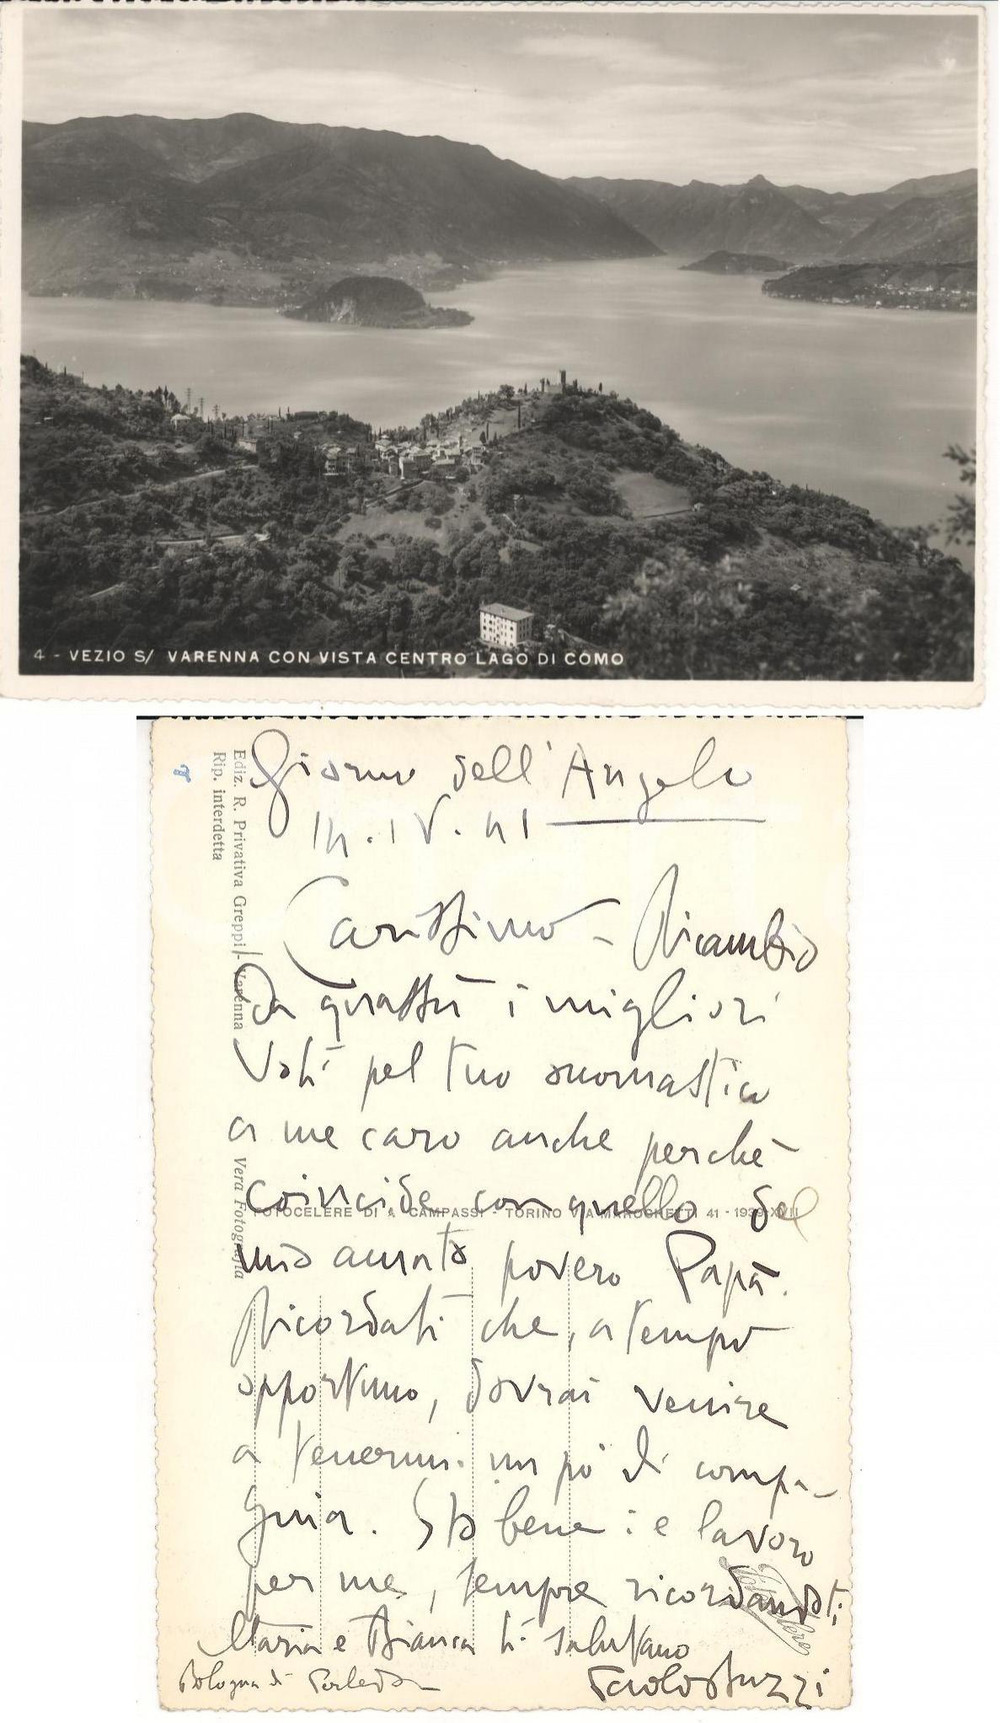 4 - VEZIO S/ VARENNA CON VISTA CENTRO LAGO DI COMO
Giorno dell'Angelo
14.IV.41
Carissimo - Ricambio
da quassù i migliori
voti pel tuo onomastico
a me caro anche perchè
coincide con quello del
mio amato povero Papà.
Ricordati che, a tempo
opportuno, dovrai venire
a tenermi un pò di compa-
gnia. Sto bene: e lavoro
per me, sempre ricordandoti.
Maria e Bianca ti salutano
Bologna di Perledo
Ediz. R. Privativa Greppi - Varenna
Rip. interdetta
Vera Fotografia
FOTOCELERE DI A. CAMPASSI - TORINO VIA MAROCHETTI 41 - 1939-XVII